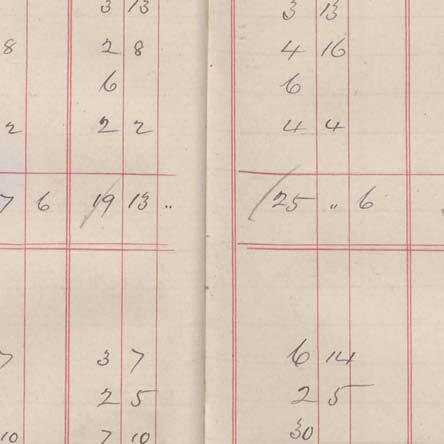 3 13 3 13
8 2 8 4 16
6 6
2 2 2 4 4
7 6 19 13 .. 25 .. 6
7 3 7 6 14
2 5 2 5
10 7 10 30